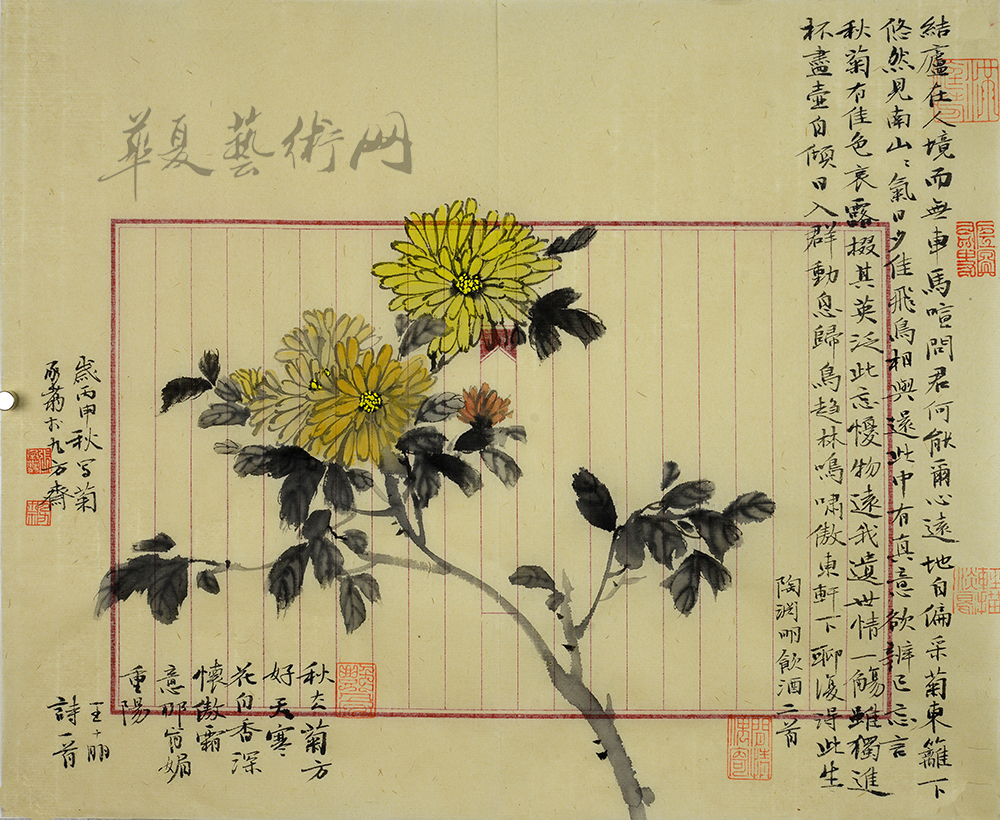 華夏藝術网
結廬在人境而無車馬喧問君何能爾心遠地自偏采菊東籬下
悠然見南山〻氣日夕佳飛鳥相與還此中有真意欲辨已忘言
秋菊有佳色裛露掇其英泛此忘懮物遠我遺世情一觴雖獨進
杯盡壺自傾日入群動息歸鳥趍林鳴嘯傲東軒下聊復得此生
陶渊明飲酒二首
秋去菊方
好天寒
花自香深
懷傲霜
意那肯媚
重陽
王十朋
詩一首
歲丙申秋写菊
於九方齋